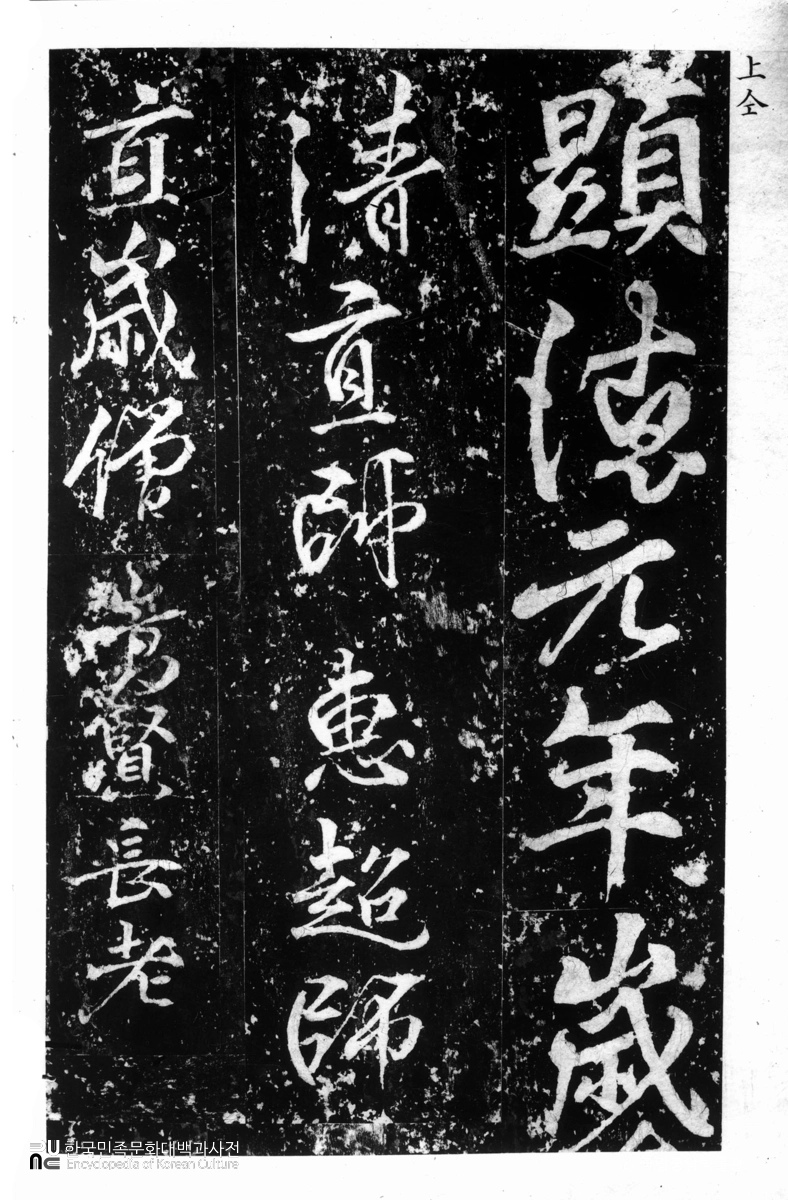 上仝
顯德元年歲
清直師 惠超師
直歲僧 賢長老
한국민족문화대백과사전
Encyclopedia of Korean Culture